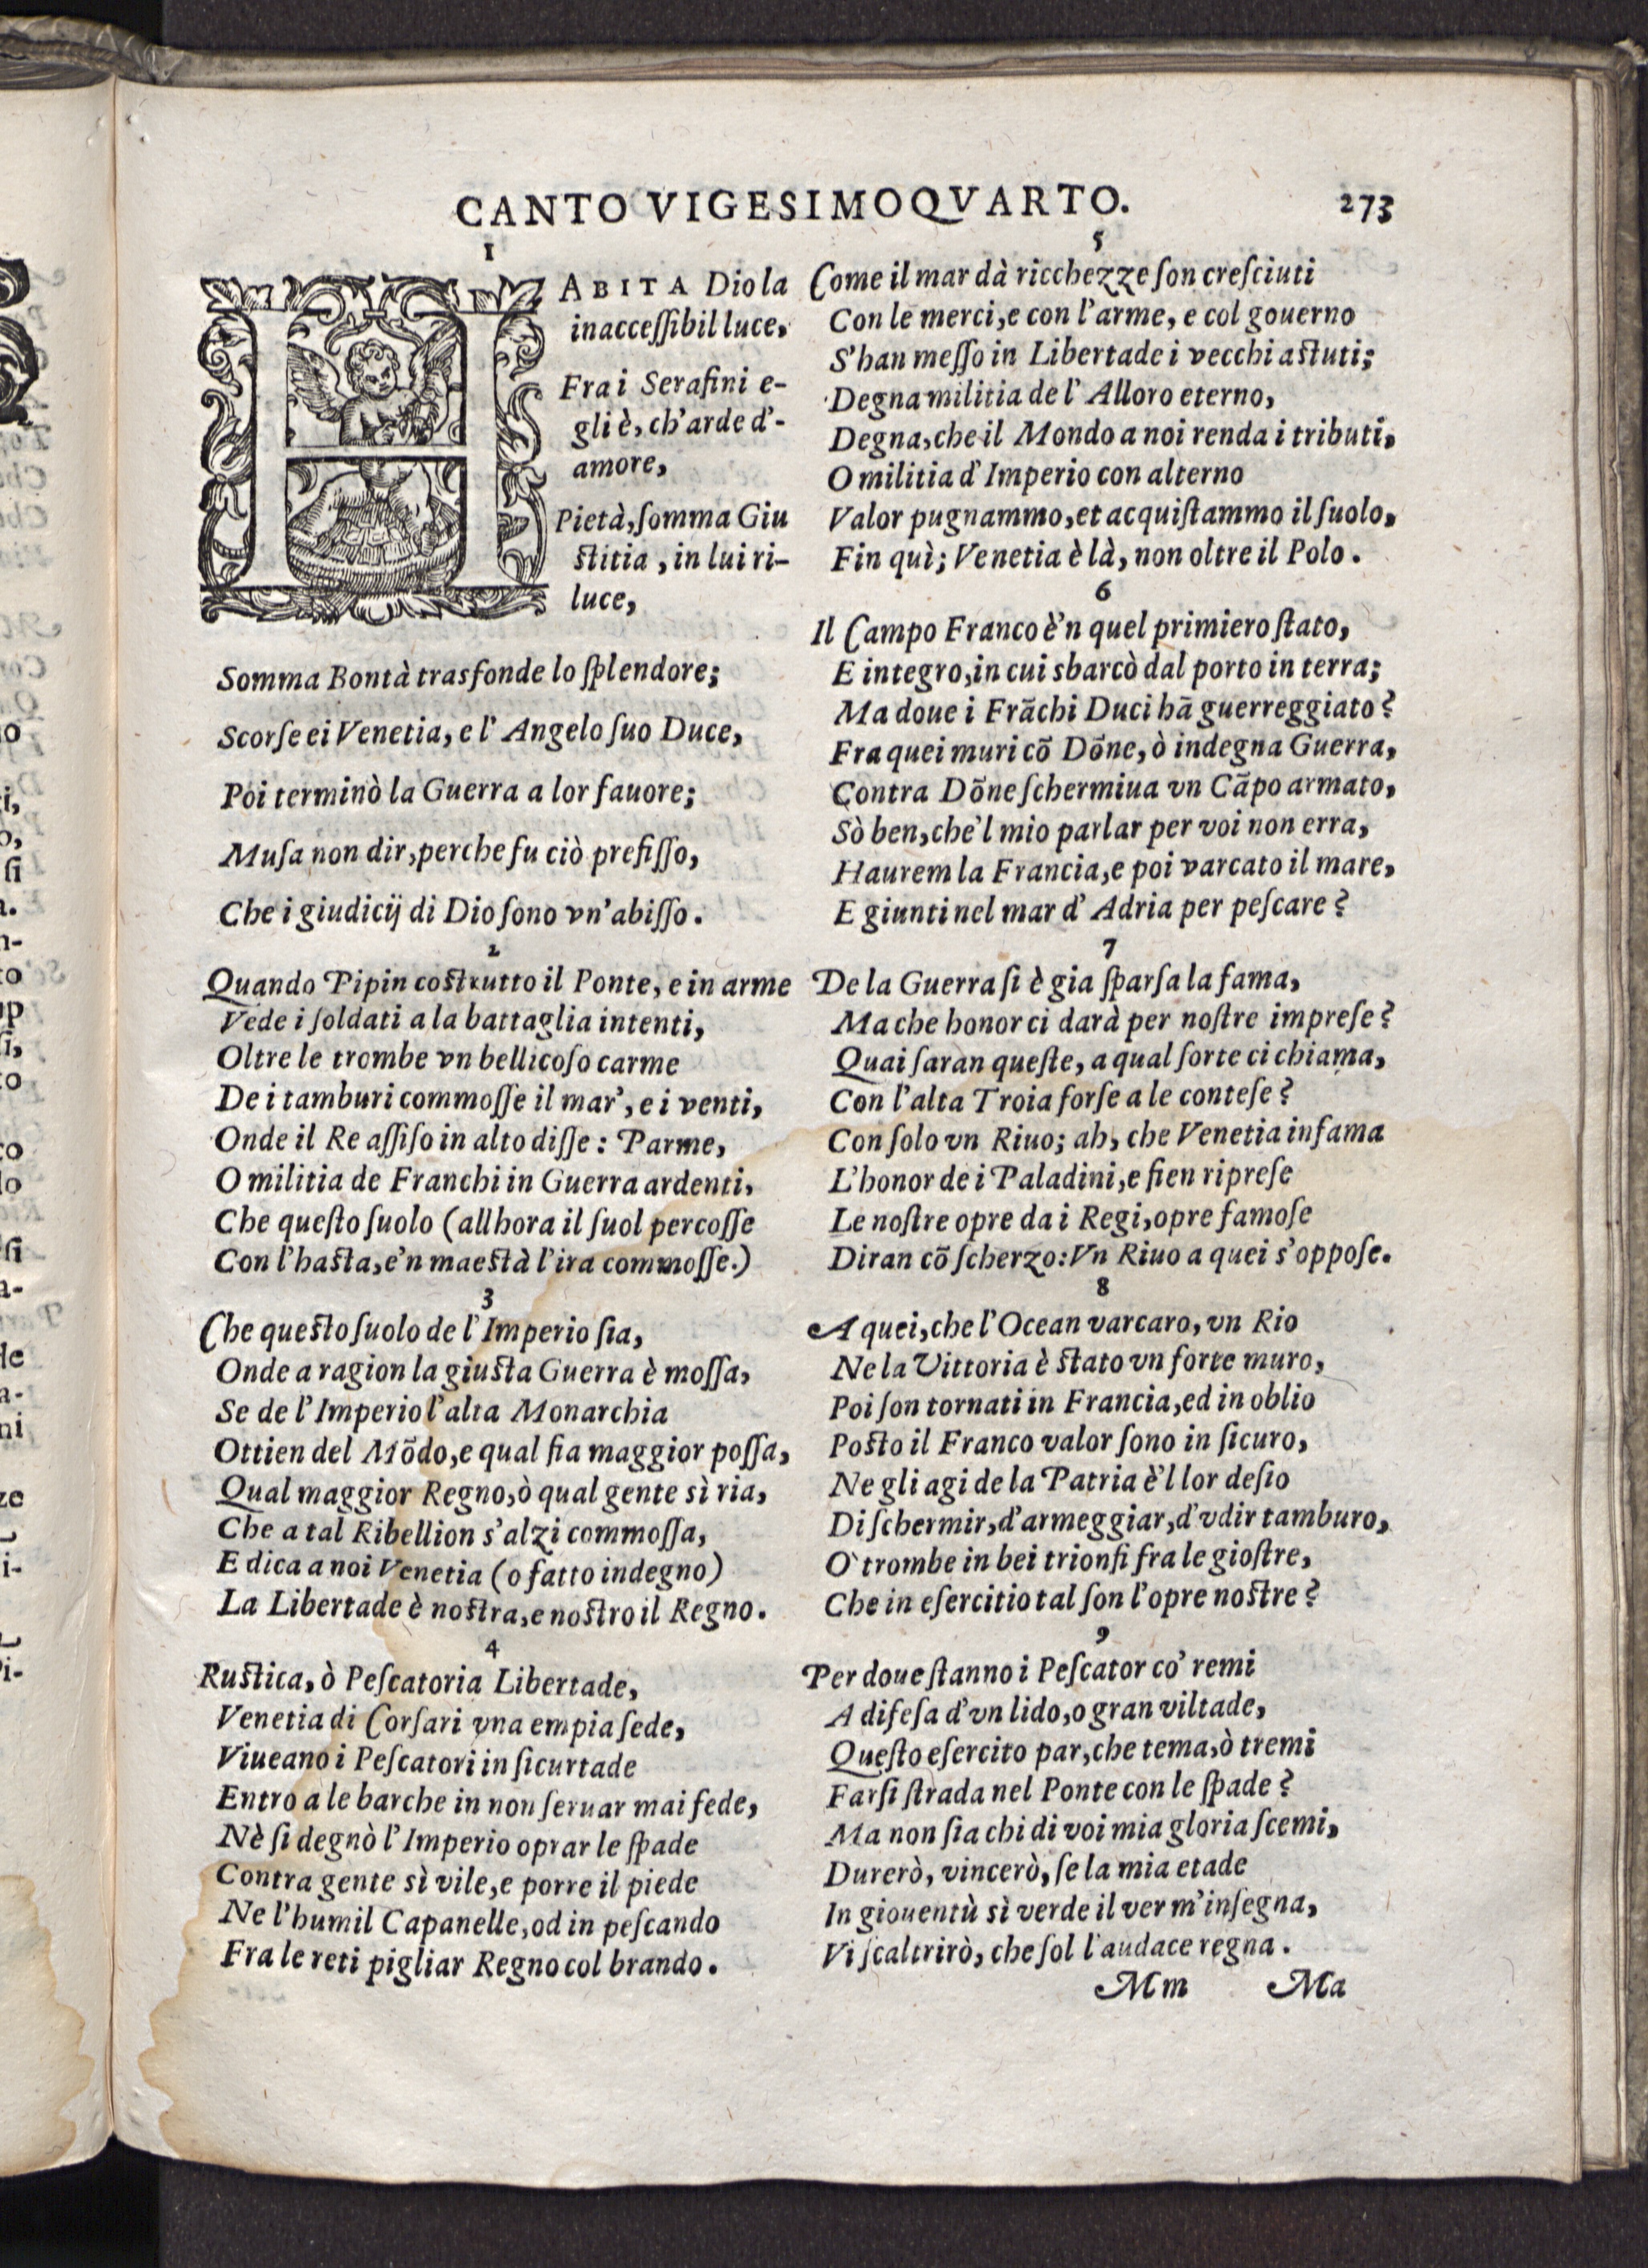 CANTO VIGESIMOQVARTO. 273
1
HABITA Dio la
inaccessibil luce,
Fra i Serafini e-
gli è, ch'arde d'-
amore,
Pietà, somma Giu
stitia, in lui ri-
luce,
Somma Bontà trasfonde lo splendore;
Scorse ei Venetia, e l'Angelo suo Duce,
Poi terminò la Guerra a lor fauore;
Musa non dir, perche fu ciò prefisso,
Che i giudicij di Dio sono vn'abisso.
2
Quando Pipin costrutto il Ponte, e in arme
Vede i soldati a la battaglia intenti,
Oltre le trombe vn bellicoso carme
De i tamburi commosse il mar', e i venti,
Onde il Re assiso in alto disse: Parme,
O militia de Franchi in Guerra ardenti,
Che questo suolo (allhora il suol percosse
Con l'hasta, e'n maestà l'ira commosse.)
3
Che questo suolo de l'Imperio sia,
Onde a ragion la giusta Guerra è mossa,
Se de l'Imperio l'alta Monarchia
Ottien del Mõdo, e qual fia maggior possa,
Qual maggior Regno, ò qual gente sì ria,
Che a tal Ribellion s'alzi commossa,
E dica a noi Venetia (o fatto indegno)
La Libertade è nostra, e nostro il Regno.
4
Rustica, ò Pescatoria Libertade,
Venetia di Corsari vna empia sede,
Viueano i Pescatori in sicurtade
Entro a le barche in non seruar mai fede,
Nè si degnò l'Imperio oprar le spade
Contra gente sì vile, e porre il piede
Ne l'humil Capanelle, od in pescando
Fra le reti pigliar Regno col brando.
5
Come il mar dà ricchezze son cresciuti
Con le merci, e con l'arme, e col gouerno
S'han messo in Libertade i vecchi astuti;
Degna militia de l'Alloro eterno,
Degna, che il Mondo a noi renda i tributi,
O militia d'Imperio con alterno
Valor pugnammo, et acquistammo il suolo,
Fin quì; Venetia è là, non oltre il Polo.
6
Il Campo Franco è'n quel primiero stato,
E integro, in cui sbarcò dal porto in terra;
Ma doue i Frãchi Duci hã guerreggiato?
Fra quei muri cõ Dõne, ò indegna Guerra,
Contra Dõne schermiua vn Cãpo armato,
Sò ben, che'l mio parlar per voi non erra,
Haurem la Francia, e poi varcato il mare,
E giunti nel mar d'Adria per pescare?
7
De la Guerra si è gia sparsa la fama,
Ma che honor ci darà per nostre imprese?
Quai saran queste, a qual sorte ci chiama,
Con l'alta Troia forse a le contese?
Con solo vn Riuo; ah, che Venetia infama
L'honor de i Paladini, e fien riprese
Le nostre opre da i Regi, opre famose
Diran cõ scherzo: Vn Riuo a quei s'oppose.
8
A quei, che l'Ocean varcaro, vn Rio
Ne la Vittoria è stato vn forte muro,
Poi son tornati in Francia, ed in oblio
Posto il Franco valor sono in sicuro,
Ne gli agi de la Patria è'l lor desio
Di schermir, d'armeggiar, d'vdir tamburo,
O' trombe in bei trionfi fra le giostre,
Che in esercitio tal son l'opre nostre?
9
Per doue stanno i Pescator co' remi
A difesa d'vn lido, o gran viltade,
Questo esercito par, che tema, ò tremi
Farsi strada nel Ponte con le spade?
Ma non sia chi di voi mia gloria scemi,
Durerò, vincerò, se la mia etade
In giouentù sì verde il ver m'insegna,
Vi scaltrirò, che sol l'audace regna.
Mm Ma